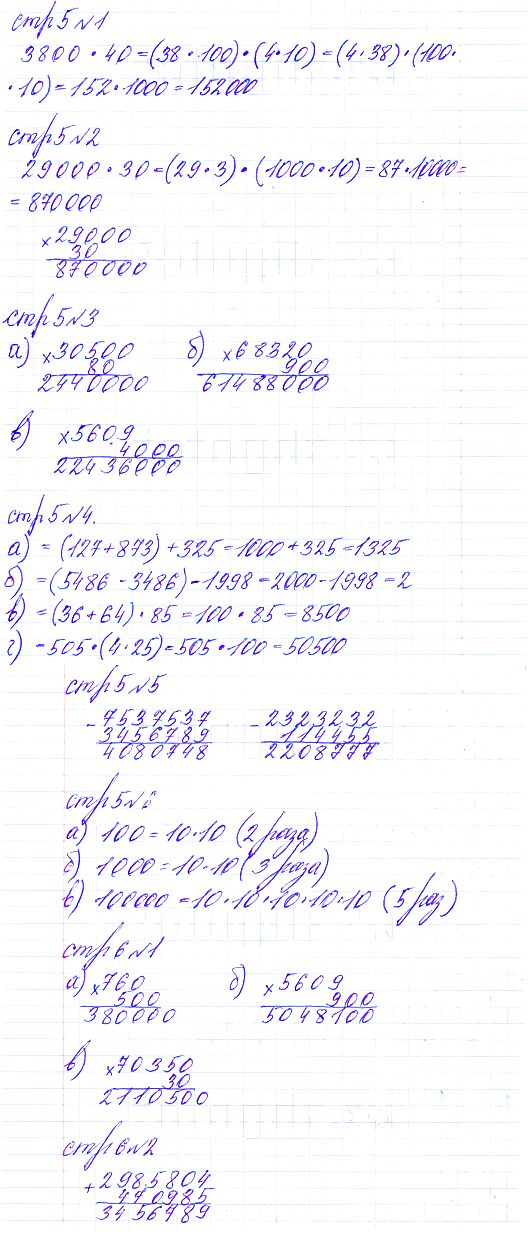 стр 5 №1
3800 · 40 = (38 · 100) · (4 · 10) = (4 · 38) · (100 ·
· 10) = 152 · 1000 = 152000
стр 5 №2
29000 · 30 = (29 · 3) · (1000 · 10) = 87 · 10000 =
= 870000
× 29000
30
870000
стр 5 №3
а) × 30500 б) × 68320
80 900
2440000 61488000
в) × 5609
4000
22436000
стр 5 №4.
а) = (127 + 873) + 325 = 1000 + 325 = 1325
б) = (5486 - 3486) - 1998 = 2000 - 1998 = 2
в) = (36 + 64) · 85 = 100 · 85 = 8500
г) = 505 · (4 · 25) = 505 · 100 = 50500
стр 5 №5
- 7537537 - 2323232
3456789 114455
4080748 2208777
стр 5 №6
а) 100 = 10 · 10 (2 раза)
б) 1000 = 10 · 10 (3 раза)
в) 100000 = 10 · 10 · 10 · 10 · 10 (5 раз)
стр 6 №1
а) × 760 б) × 5609
500 900
380000 5048100
в) × 70350
30
2110500
стр 6 №2
+ 2985804
470985
3456789